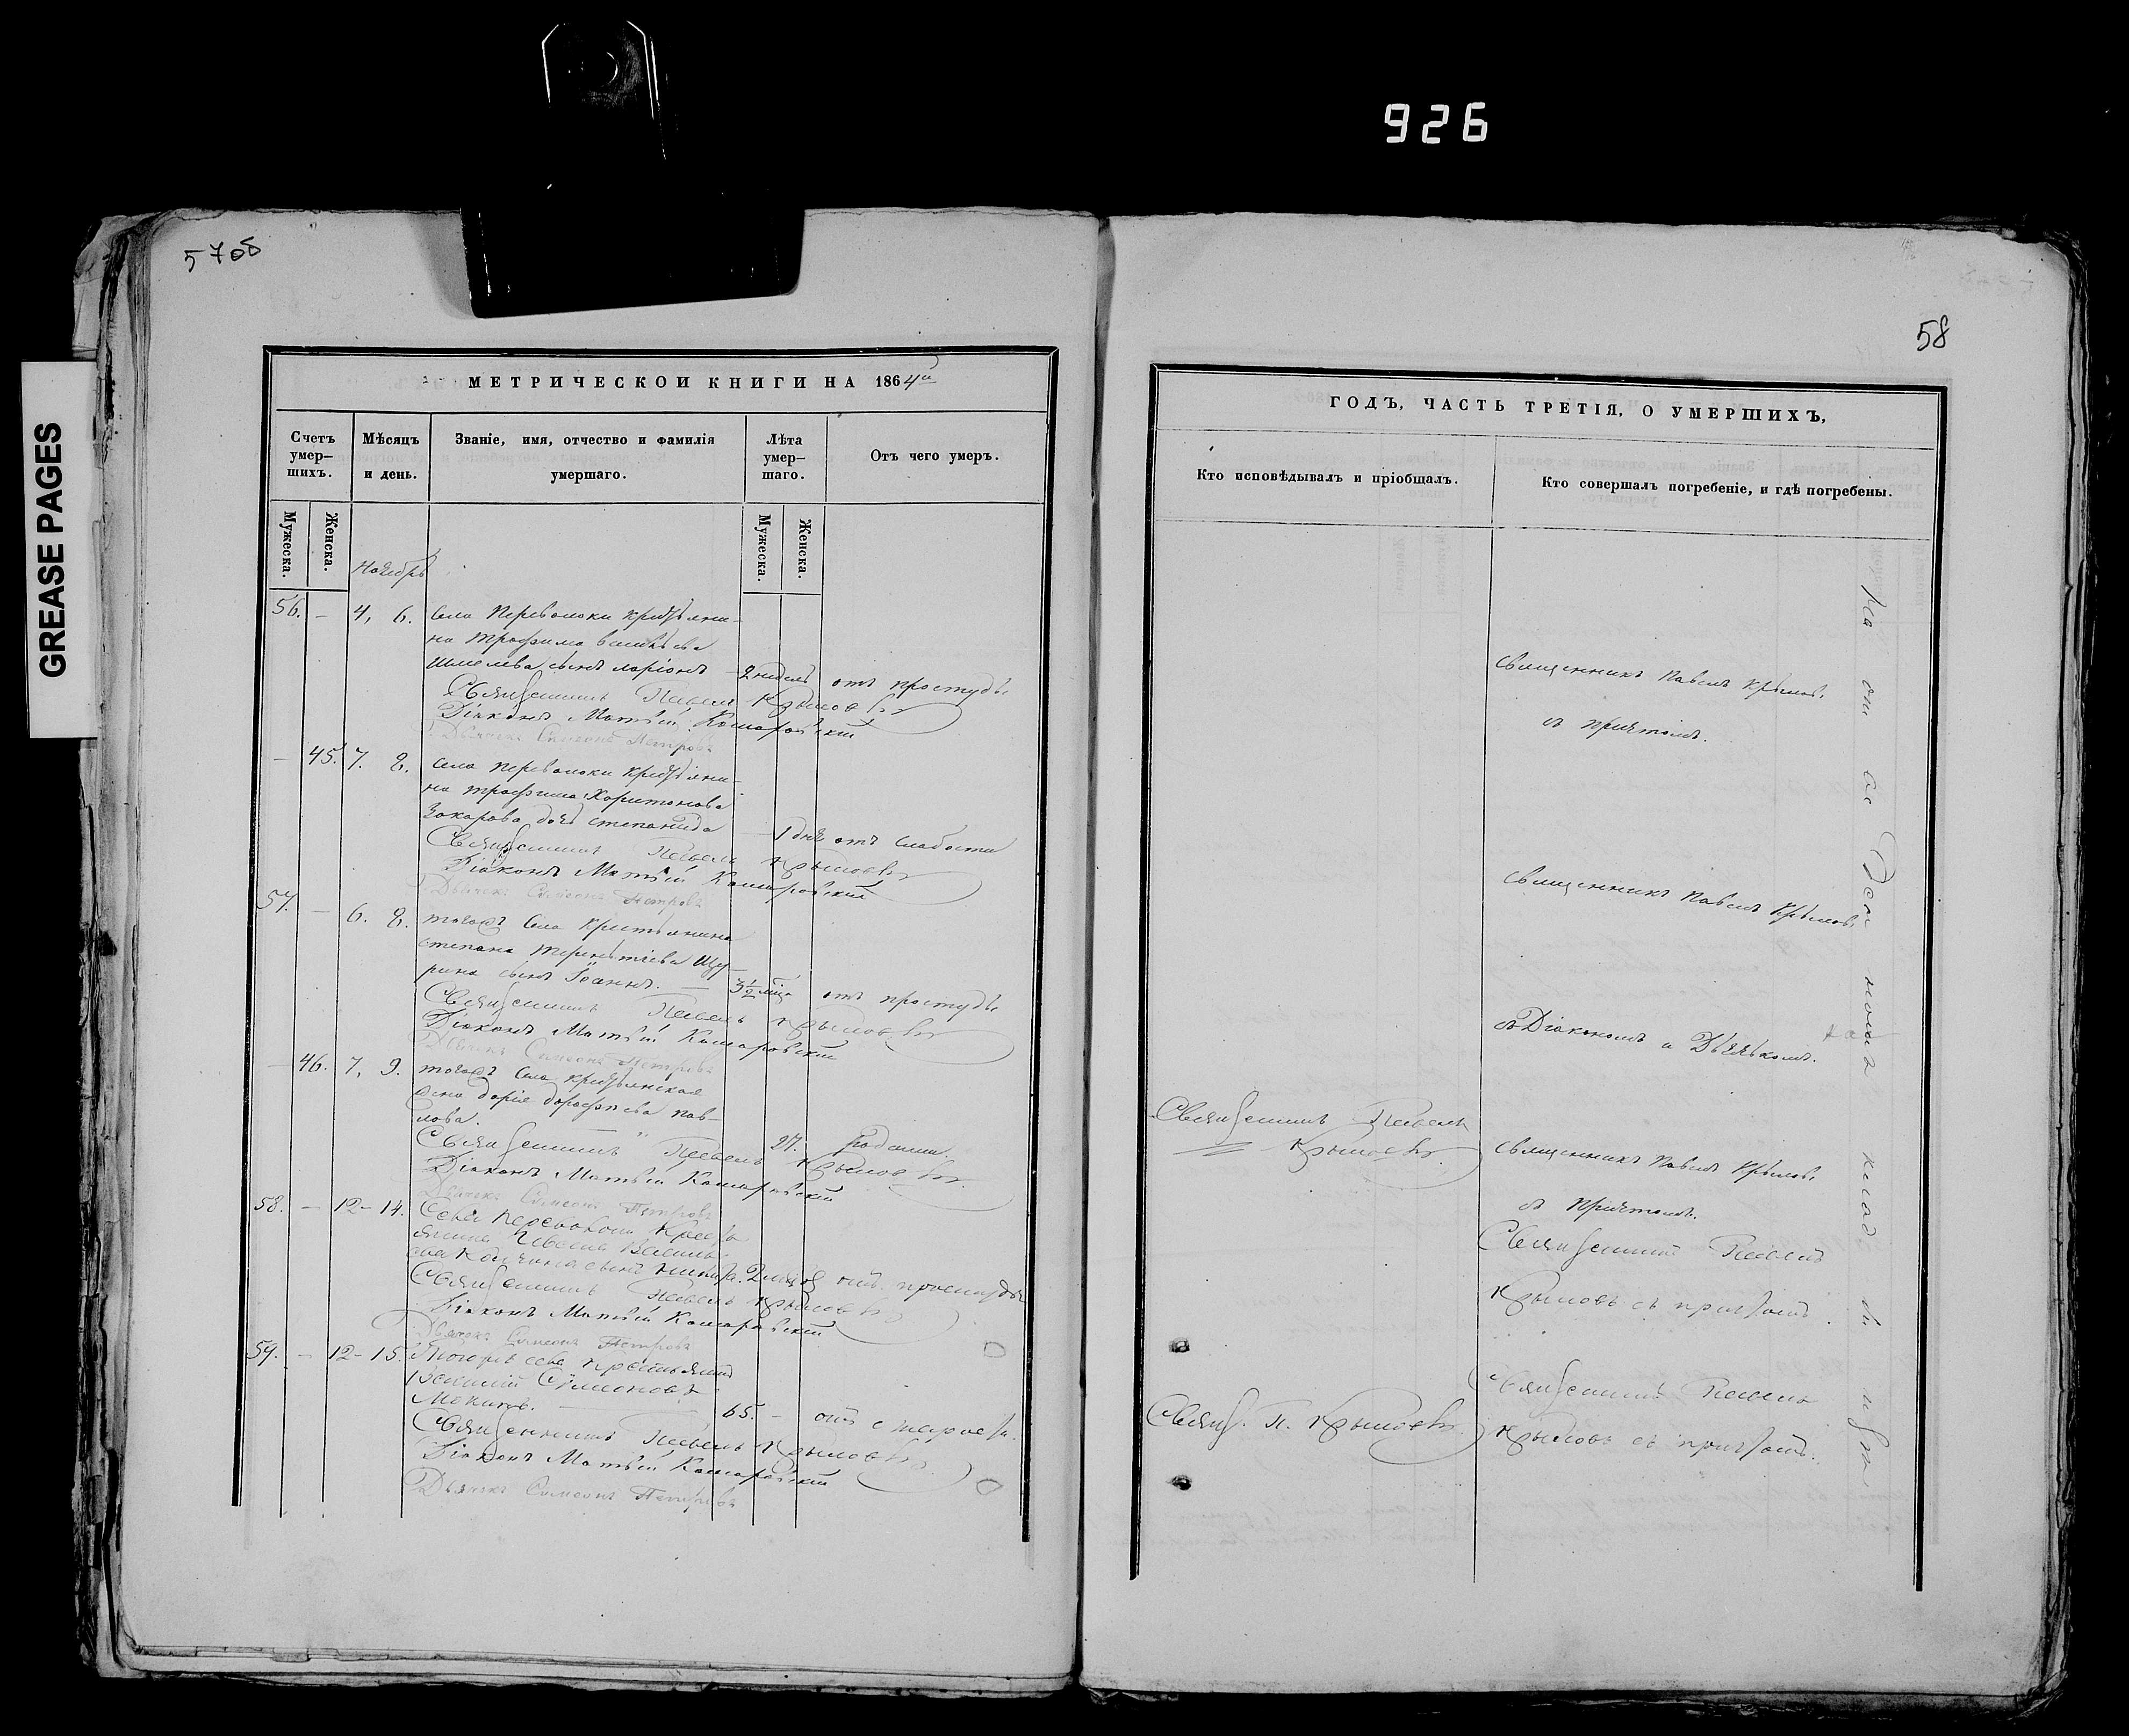 926
GREASE PAGES
5708
МЕТРИЧЕСКОЙ КНИГИ НА 1864й
Счетъ умер-
шихъ.
Мѣсяцъ
и день.
Званіе, имя, отчество и фамилія
умершаго.
Лѣта
умер-
шаго.
Отъ чего умеръ.
Мужеска.
Женска.
Мужеска.
Женска.
Ноябрь
56. – 4, 6. Села Переволоки крестьяни-
на Трофима
Шмелева сынъ Ларіонъ – 2 недель отъ простуды
Священникъ Павелъ Крыловъ
Діаконъ Матвѣй Комаровскій
Дьячекъ Симеонъ Петровъ
– 45. 7. 8. Села Переволоки крестьяни-
на Трофима Харитонова
Захарова дочь Степанида – 1 дня отъ слабости
Священникъ Павелъ Крыловъ
Діаконъ Матвѣй Комаровскій
Дьячекъ Симеонъ Петровъ
57. – 6. 8. тогожъ Села крестьянина
Степана Терентьева Щу-
рина сынъ Іоаннъ. – 3½ мѣц. отъ простуды
Священникъ Павелъ Крыловъ
Діаконъ Матвѣй Комаровскій
Дьячекъ Симеонъ Петровъ
– 46. 7, 9. тогожъ Села крестьянская
жена Дарія Дорофѣева Пав-
лова. – 27. родами.
Священникъ Павелъ Крыловъ
Діаконъ Матвѣй Комаровскій
Дьячекъ Симеонъ Петровъ
58. – 12–14. Села Переволоки Кресть
янина Василь
ева сынъ Никита. 2 отъ простуды
Священникъ Павелъ Крыловъ
Діаконъ Матвѣй Комаровскій
Дьячекъ Симеонъ Петровъ
59. – 12–15. Тогожъ села крестьянинъ
Василій Симоновъ
65. – отъ старости.
Священникъ Павелъ Крыловъ
Діаконъ Матвѣй Комаровскій
Дьячекъ Симеонъ Петровъ
58
ГОДЪ, ЧАСТЬ ТРЕТІЯ, О УМЕРШИХЪ,
Кто исповѣдывалъ и пріобщалъ.
Кто совершалъ погребеніе, и гдѣ погребены.
Священникъ Павелъ Крыловъ
съ причтомъ.
Священникъ Павелъ Крыловъ
съ Діакономъ и Дьячькомъ.
Священникъ Павелъ
Крыловъ.
Священникъ Павелъ Крыловъ
съ причтомъ.
Священникъ Павелъ
Крыловъ съ причтомъ.
Свящ. П. Крыловъ.
Священникъ Павелъ
Крыловъ съ причтомъ.